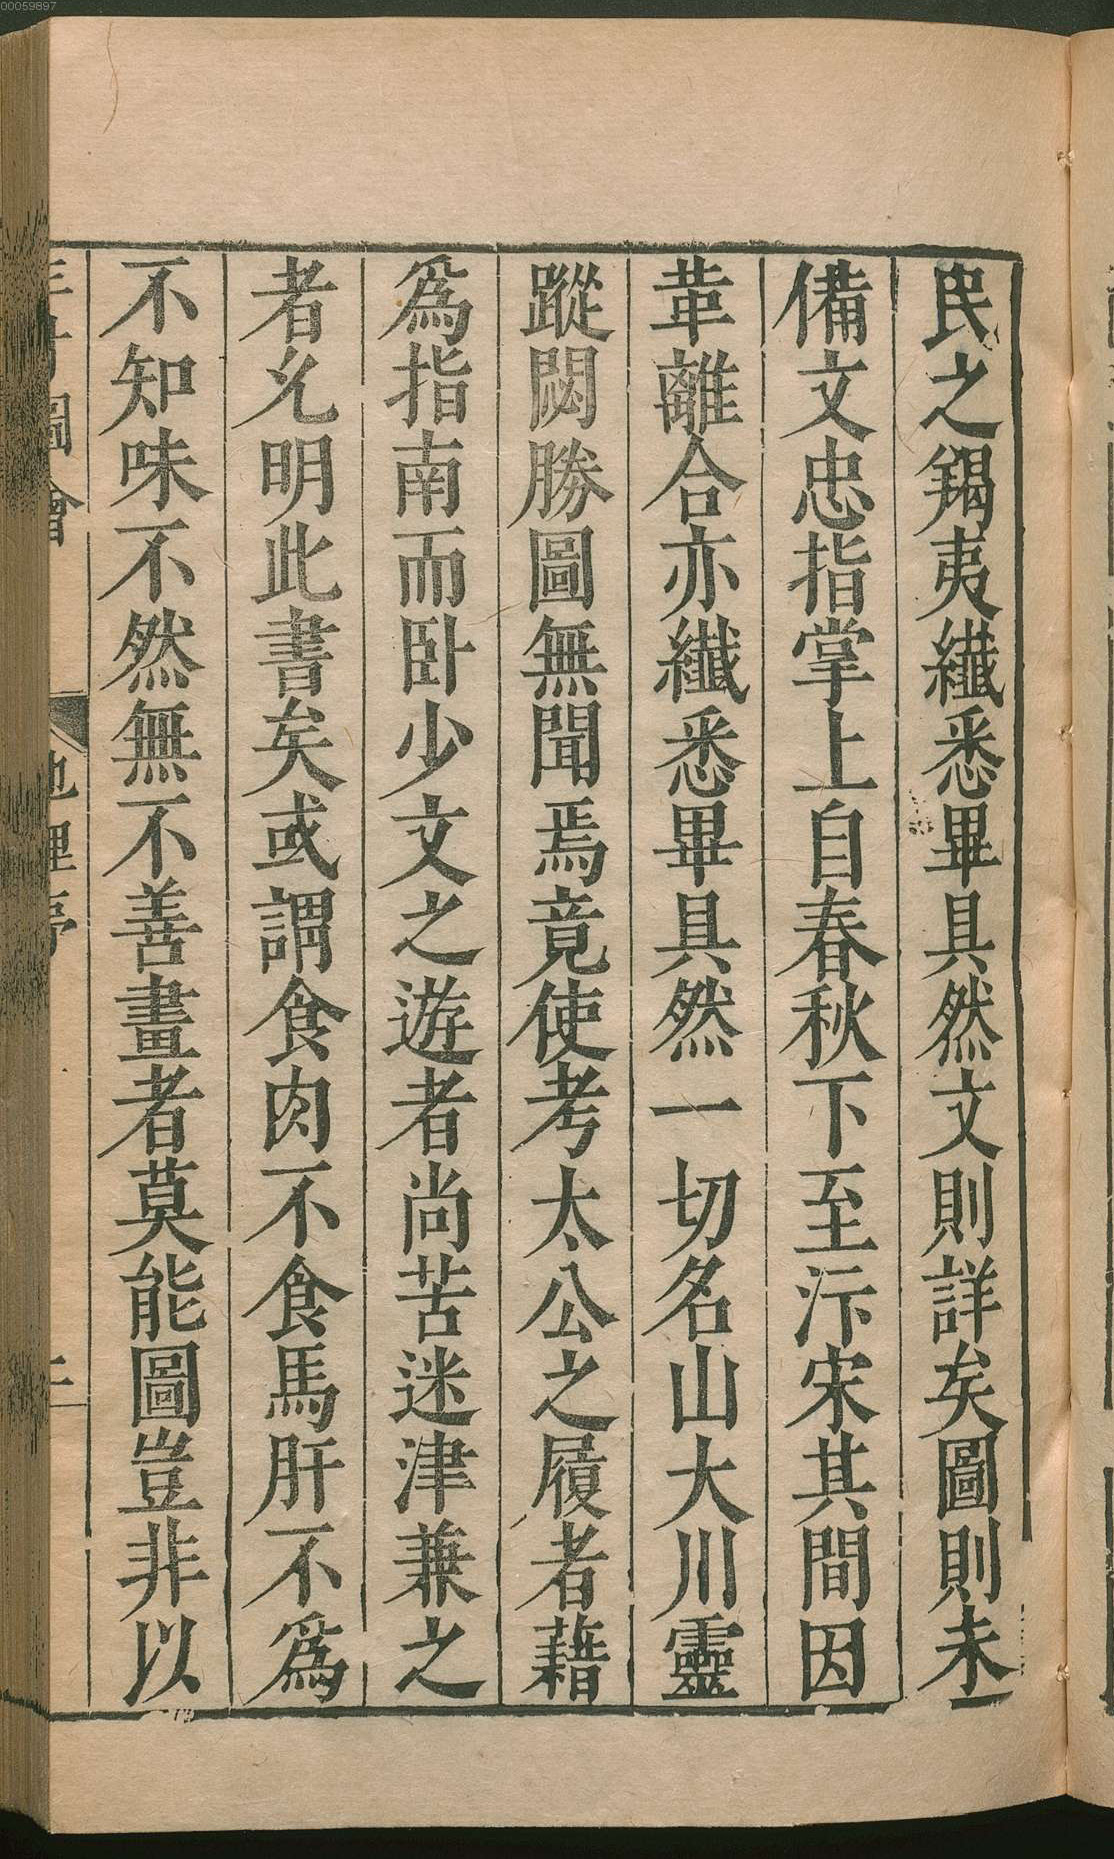 00059897
民之羯夷纖悉畢具然文則詳矣圖則未
備文忠指掌上自春秋下至汴宋其間因
革離合亦纖悉畢具然一切名山大川靈
蹤閟勝圖無聞焉竟使考太公之履者藉
爲指南而卧少文之遊者尚苦迷津兼之
者允明此書矣或謂食肉不食馬肝不爲
不知味不然無不善畫者莫能圖豈非以
圖會 地理序